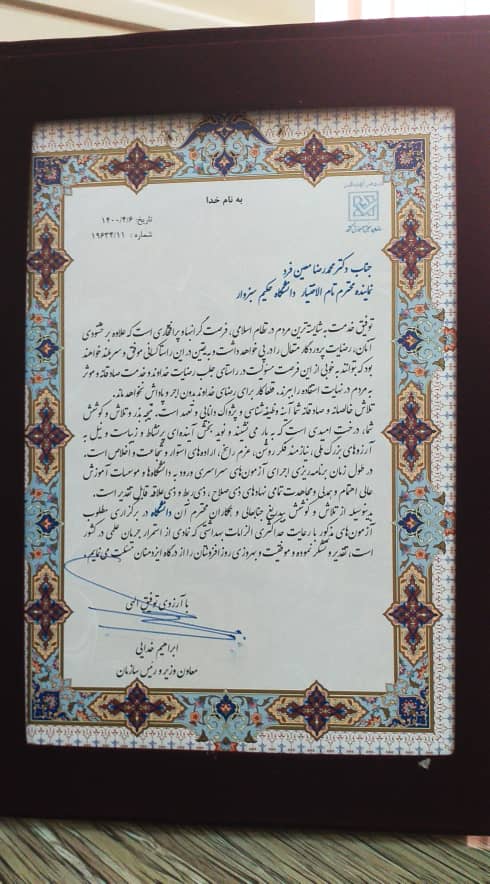 به نام خدا
تاریخ: ۱۴۰۰/۴/۶
شماره: ۱۹۶۳۴/۱۱
جناب دکتر محمدرضا معین فرد
نماینده محترم تام الاختیار دانشگاه حکیم سبزوار
توفیق خدمت به شایسته‌ترین مردم در نظام اسلامی، فرصت گرانبها و پرافتخاری است که علاوه بر خشنودی
آنان، رضایت پروردگار متعال را در پی خواهد داشت و به یقین در این راستا کسانی موفق و سربلند خواهند
بود که بتوانند به خوبی از این فرصت مسئولیت در راستای جلب رضایت خداوند و خدمت صادقانه و موثر
به مردم در نهایت استفاده را ببرند. قطعا کار برای رضای خداوند بدون اجر و پاداش نخواهد ماند.
تلاش خالصانه و صادقانه شما آینه وظیفه‌شناسی و پژواک دانایی و تعهد است. نتیجه بذر و تلاش و کوشش
شما، درخت امیدی است که به بار می نشیند و نوید بخش آینده‌ای پرنشاط و زیباست و نیل به
آرزوهای بزرگ ملی، نیازمند فکر روشن، عزم راسخ، اراده‌های استوار و شجاعت و اخلاص است.
در طول زمان برنامه‌ریزی اجرای آزمون‌های سراسری ورود به دانشگاه‌ها و موسسات آموزش
عالی اهتمام و همدلی و مجاهدت تمامی نهادهای ذی‌صلاح، ذی‌ربط و ذی علاقه قابل تقدیر است.
بدینوسیله از تلاش و کوشش بیدریغ جنابعالی و همکاران محترم آن دانشگاه در برگزاری مطلوب
آزمون‌های مذکور با رعایت حداکثری الزامات بهداشتی که نمادی از استمرار جریان علمی در کشور
است، تقدیر و تشکر نموده و موفقیت و بهروزی روز افزونتان را از درگاه ایزد منان مسئلت می نمایم.
با آرزوی توفیق الهی
ابراهیم خدایی
معاون وزیر و رئیس سازمان